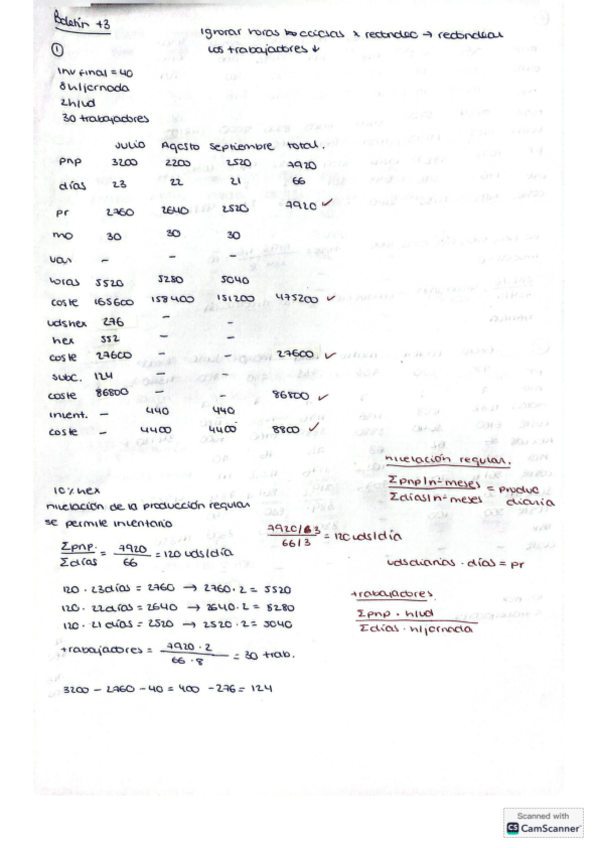 Boletín +3
Ignorar horas ociosas x redondeo → redondear
los trabajadores ↓
①
Inv final = 40
8h/jornada
2h/ud
30 trabajadores
JULIO Agosto Septiembre total.
pnp 3200 2200 2520 7920
días 23 22 21 66
pr 2760 2640 2520 7920 ✓
mo 30 30 30
var - - -
horas 5520 5280 5040
coste 165600 158400 151200 475200 ✓
udshex 276 - -
hex 552 - -
coste 27600 - - 27600 ✓
subc. 124 - -
coste 86800 - - 86800 ✓
invent. - 440 440
coste - 4400 4400 8800 ✓
nivelación regular.
Σpnp/nº meses / Σdías/nº meses = produc diaria
10% hex
nivelación de la producción regular
se permite inventario
7920/3 / 66/3 = 120 uds/día
Σpnp. / Σdías = 7920 / 66 = 120 uds/día
uds diarias · días = pr
120 · 23días = 2760 → 2760 · 2 = 5520
120 · 22días = 2640 → 2640 · 2 = 5280
120 · 21 días = 2520 → 2520 · 2 = 5040
trabajadores.
Σpnp · h/ud / Σdías · h/jornada
trabajadores = 7920 · 2 / 66 · 8 = 30 trab.
3200 - 2760 - 40 = 400 - 276 = 124
Scanned with
CS CamScanner